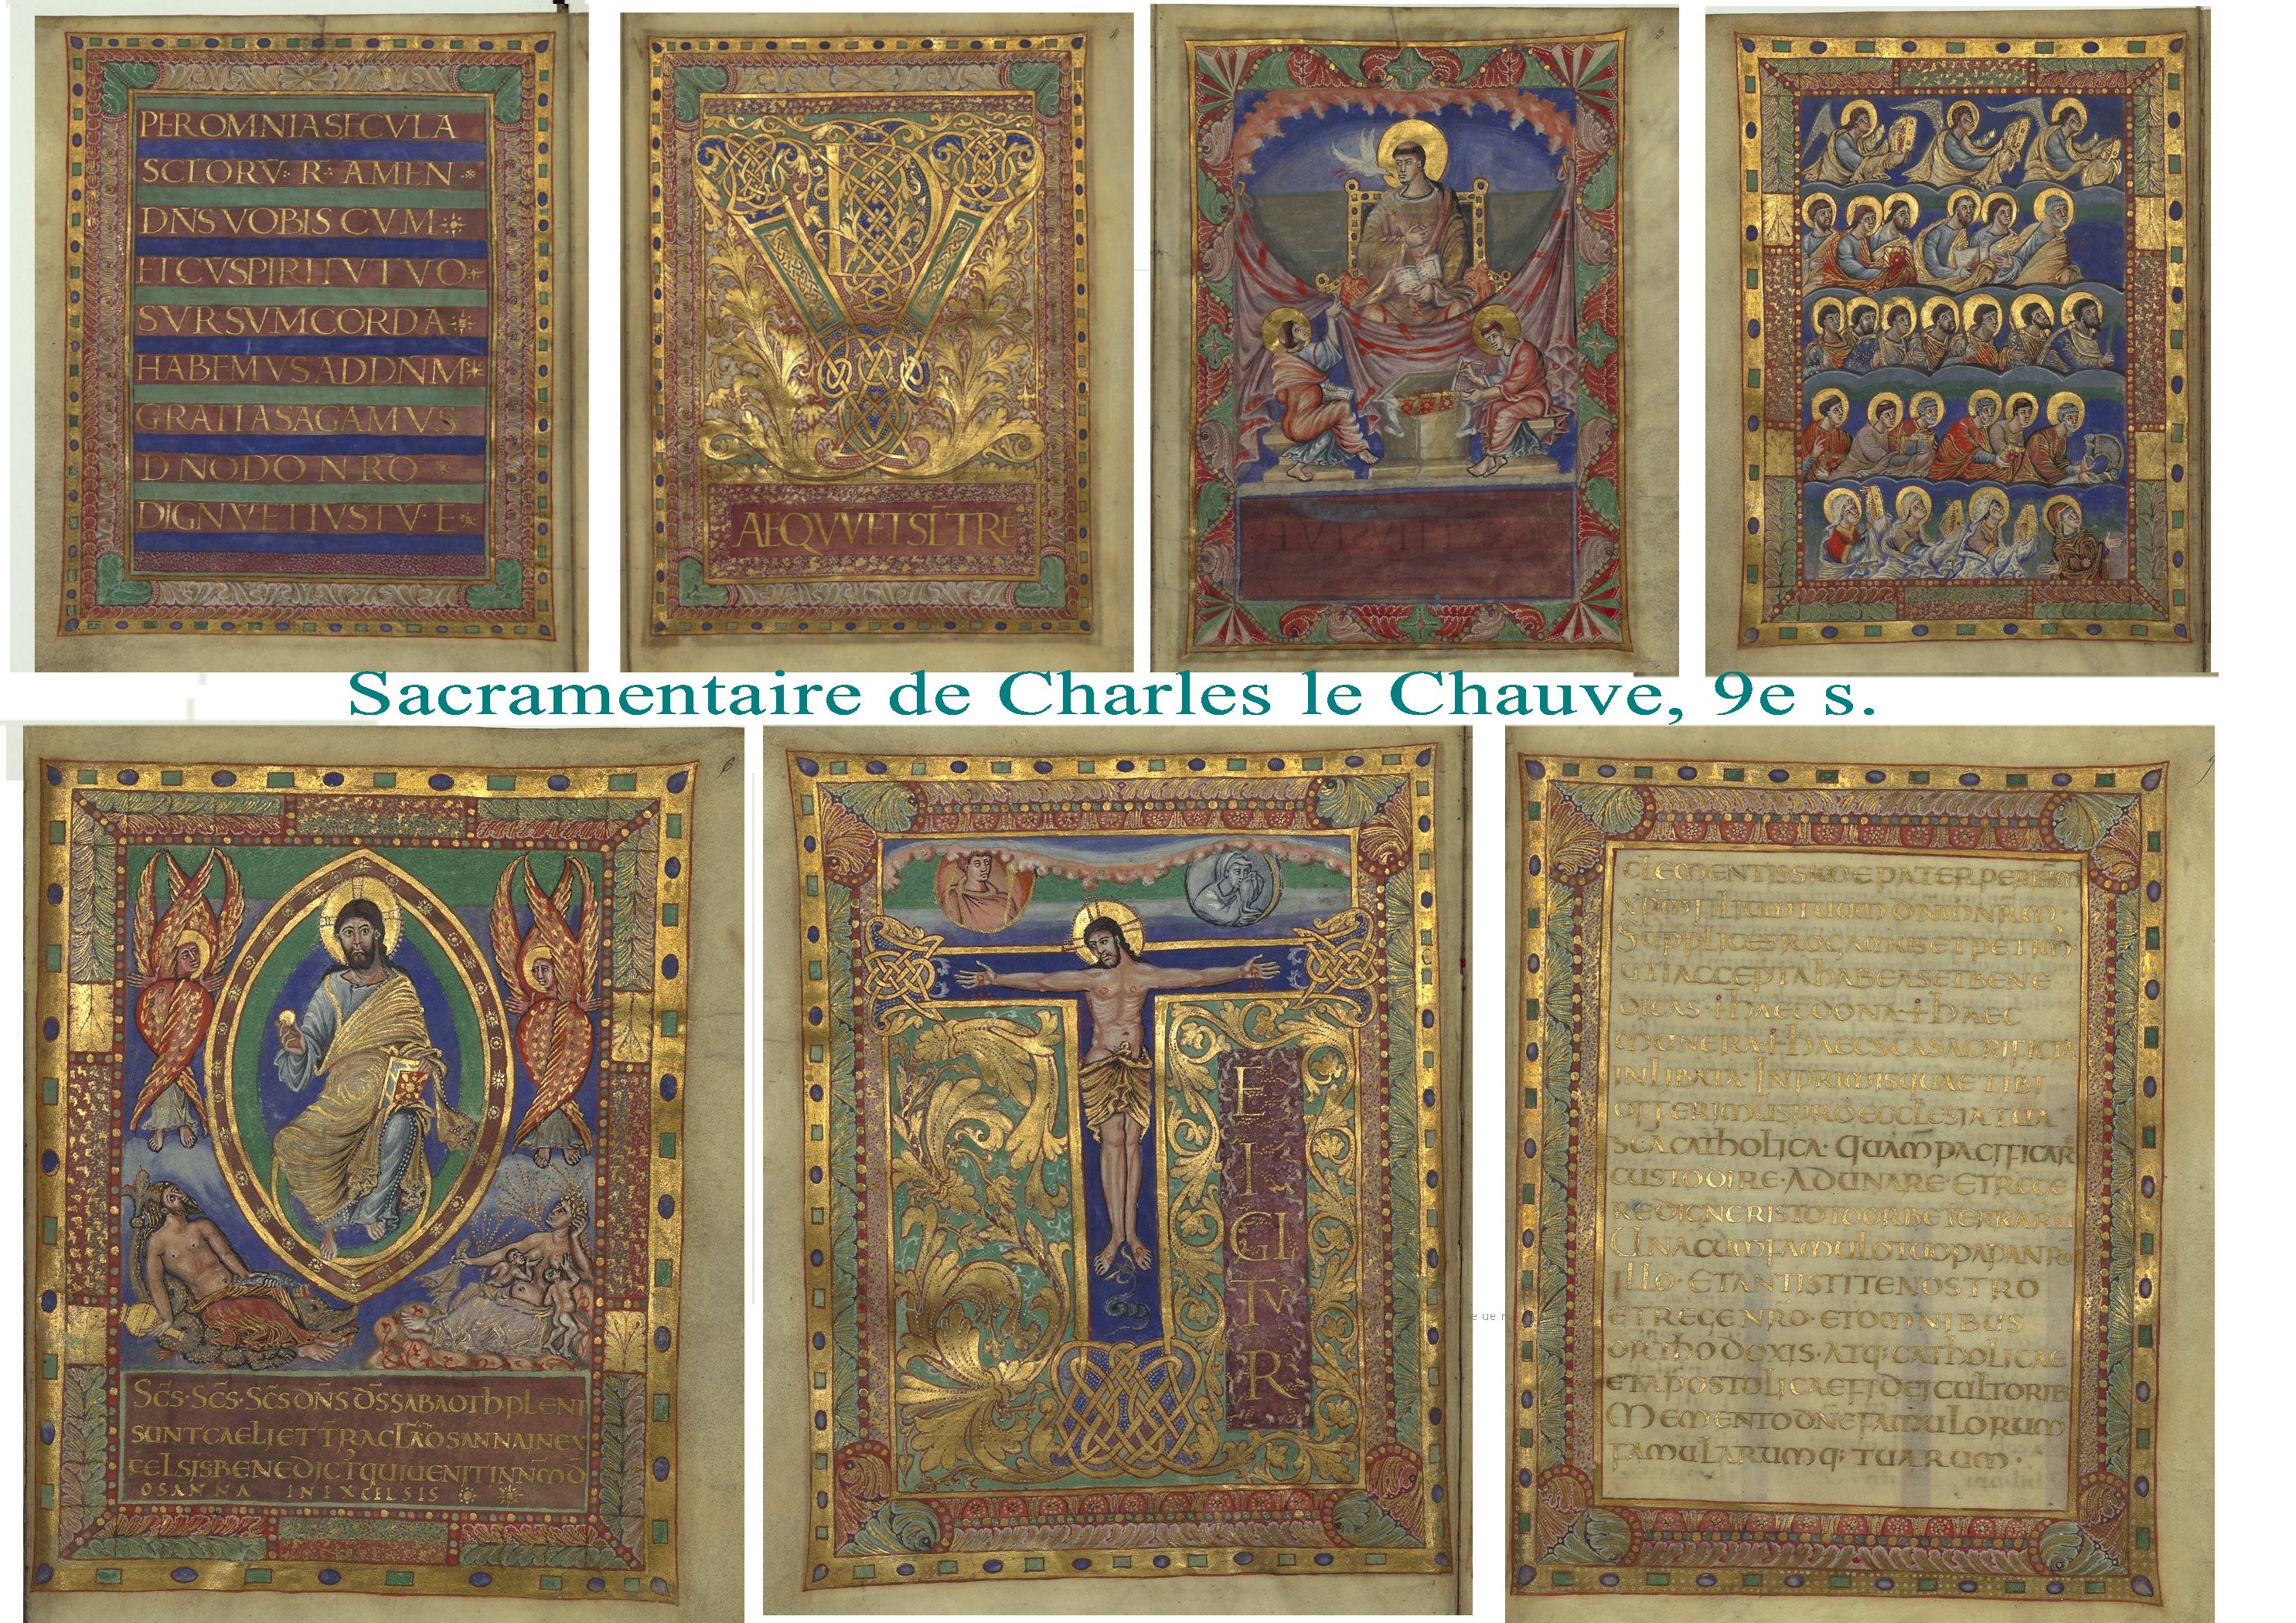 PER OMNIA SECVLA
SCLORV· R· AMEN
DN̅S VOBIS CVM
ET CV SPIRITV TVO
SVRSVM CORDA
HABEMVS AD DN̅M
GRATIAS AGAMVS
DNO DO NRO
DIGNV ET IVSTV· E
AEQVV̅ ET SL̅TRE
Sacramentaire de Charles le Chauve, 9e s.
6
SC̅S· SC̅S· SC̅S DN̅S DS̅ SABAOTH PLENI
SUNT CAELI ET TRA GLA OSANNA IN EX
CELSIS BENEDICT QUI UENIT IN NM D
OSANNA IN EXCELSIS
E
I
GI
TV
R
CLEMENTISSIME PATER PER IHM
XPM FILIUM TUUM DNM NRM
SUPPLICES ROGAMUS ET PETIM
UTI ACCEPTA HABEAS ET BENE
DICAS· + HAEC DONA + HAEC
MUNERA + HAEC SCA SACRIFICIA
INLIBATA· IN PRIMIS QUAE TIBI
OFFERIMUS PRO ECCLESIA TUA
SCA CATHOLICA· QUAM PACIFICAR
CUSTODIRE· ADUNARE· ET REGE
RE DIGNERIS TOTO ORBE TERRARU
UNA CUM FAMULO TUO PAPA NRO
ILLO· ET ANTISTITE NOSTRO
ET REGE NRO· ET OMNIBUS
ORTHODOXIS· ATQ; CATHOLICAE
ET APOSTOLICAE FIDEI CULTORIB
MEMENTO DNE FAMULORUM
FAMULARUMQ; TUARUM·